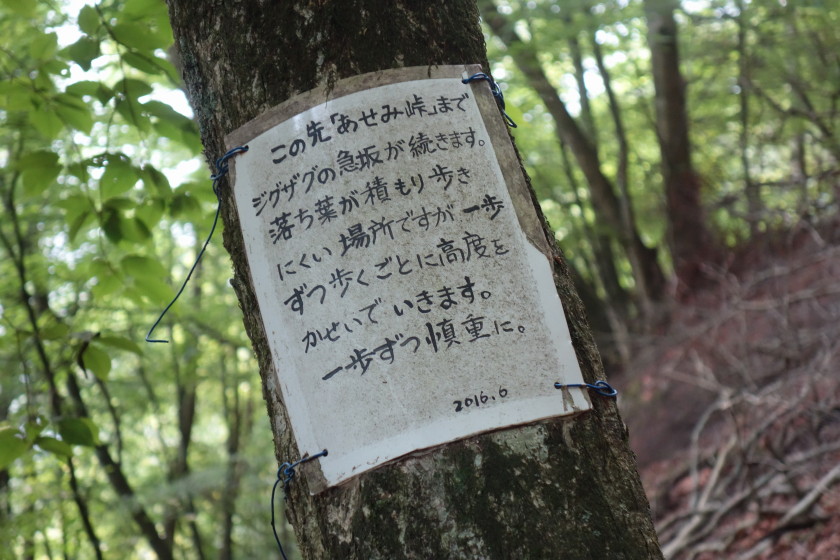 この先「あせみ峠」まで
ジグザグの急坂が続きます。
落ち葉が積もり歩き
にくい場所ですが一歩
ずつ歩くごとに高度を
かせいでいきます。
一歩ずつ慎重に。
2016.6